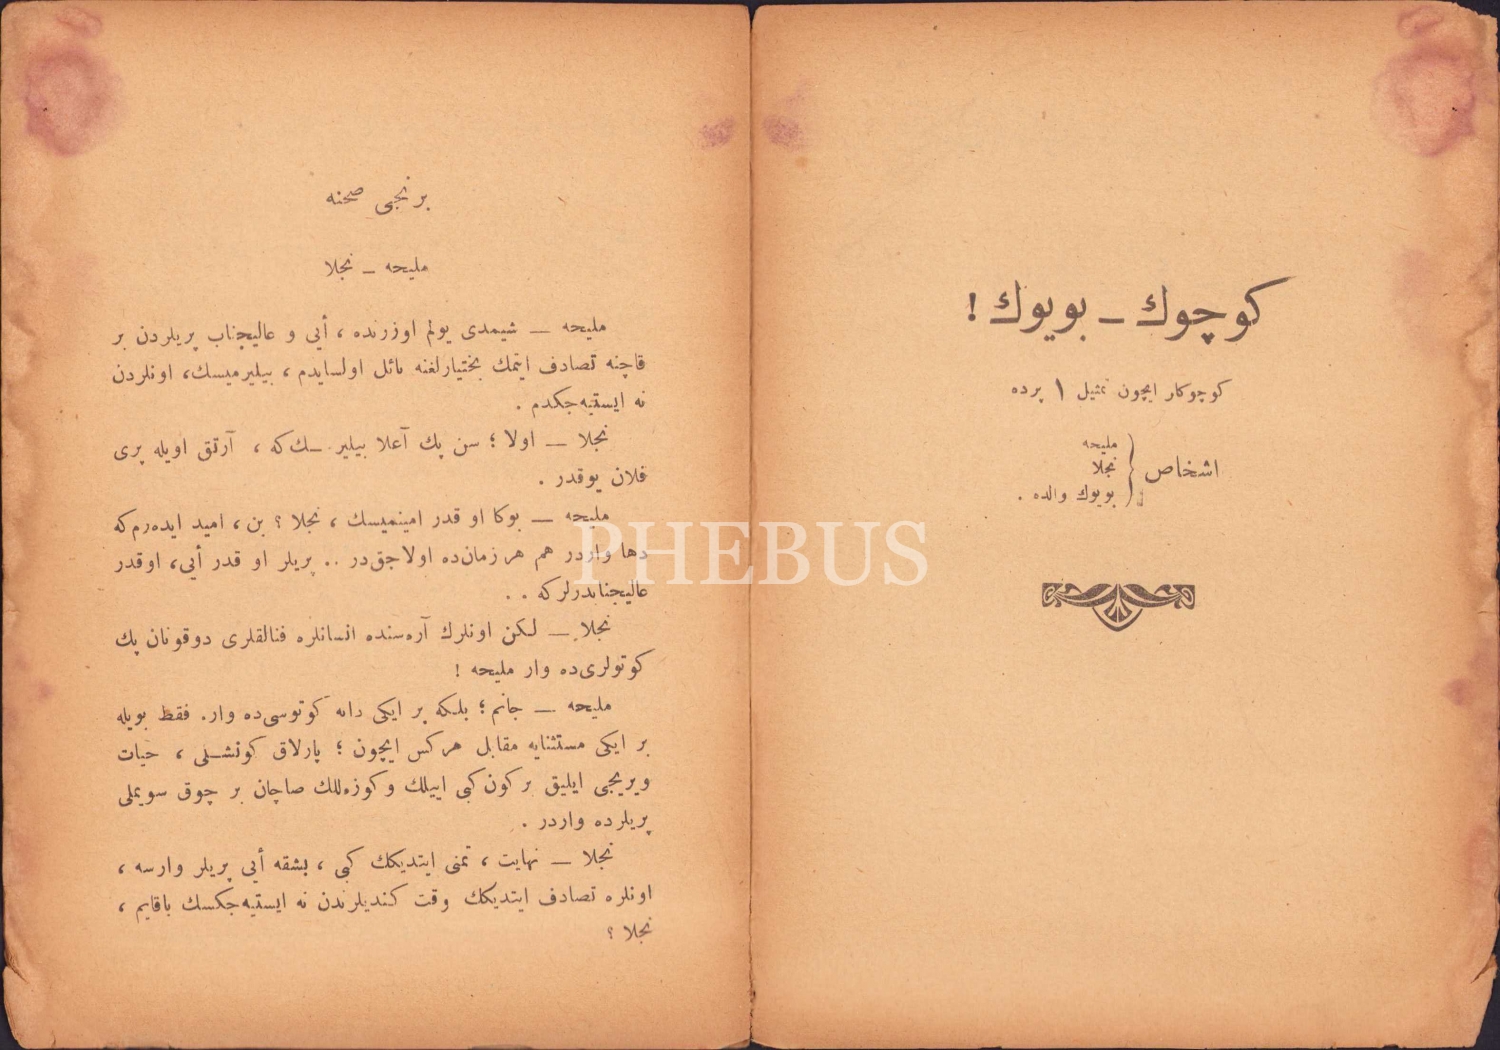 كوچوك ـ بويوك !
كوچوكلر ايچون تمثيل ١ پرده
اشخاص
مليحه
نجلا
بويوك والده .
برنجى صحنه
مليحه ـ نجلا
مليحه ـ شيمدى يولم اوزرنده ، أيى و عاليجناب پريلردن بر
قاچنه تصادف ايتمك بختيارلغنه نائل اولسايدم ، بيليرميسك، اونلردن
نه ايستيه‌جكدم .
نجلا ـ اولا ؛ سن پك آعلا بيليرسك‌كه ، آرتق اويله پرى
فلان يوقدر .
مليحه ـ بوكا او قدر امينميسك ، نجلا ؟ بن ، اميد ايده‌رم‌كه
دها واردر هم هر زمان‌ده اولاجق‌در .. پريلر او قدر أيى، اوقدر
عاليجنابدرلركه ..
نجلا ـ لكن اونلرك آره‌سنده انسانلره فنالقلرى دوقونان پك
كوتولرى‌ده وار مليحه !
مليحه ـ جانم ؛ بلكه بر ايكى دانه كوتوسى‌ده وار. فقظ بويله
بر ايكى مستثنايه مقابل هركس ايچون ؛ پارلاق كونشلى ، حيات
ويريجى ايليق بركون كبى اييلك وكوزه‌للك صاچان بر چوق سويملى
پريلرده واردر .
نجلا ـ نهايت ، تمنى ايتديكك كبى ، بشقه أيى پريلر وارسه ،
اونلره تصادف ايتديكك وقت كنديلرندن نه ايستيه‌جكسك باقايم ،
نجلا ؟
PHEBUS